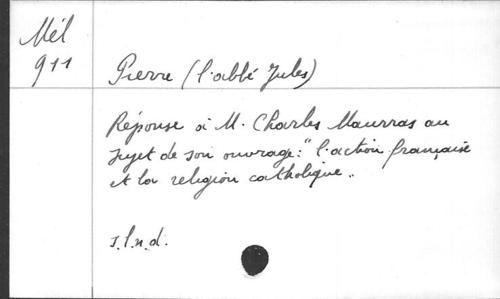 Mél
911
Pierre (l'abbé Jules)
Réponse à M. Charles Maurras au
sujet de son ouvrage: "l'action française
et la religion catholique".
s.l.n.d.